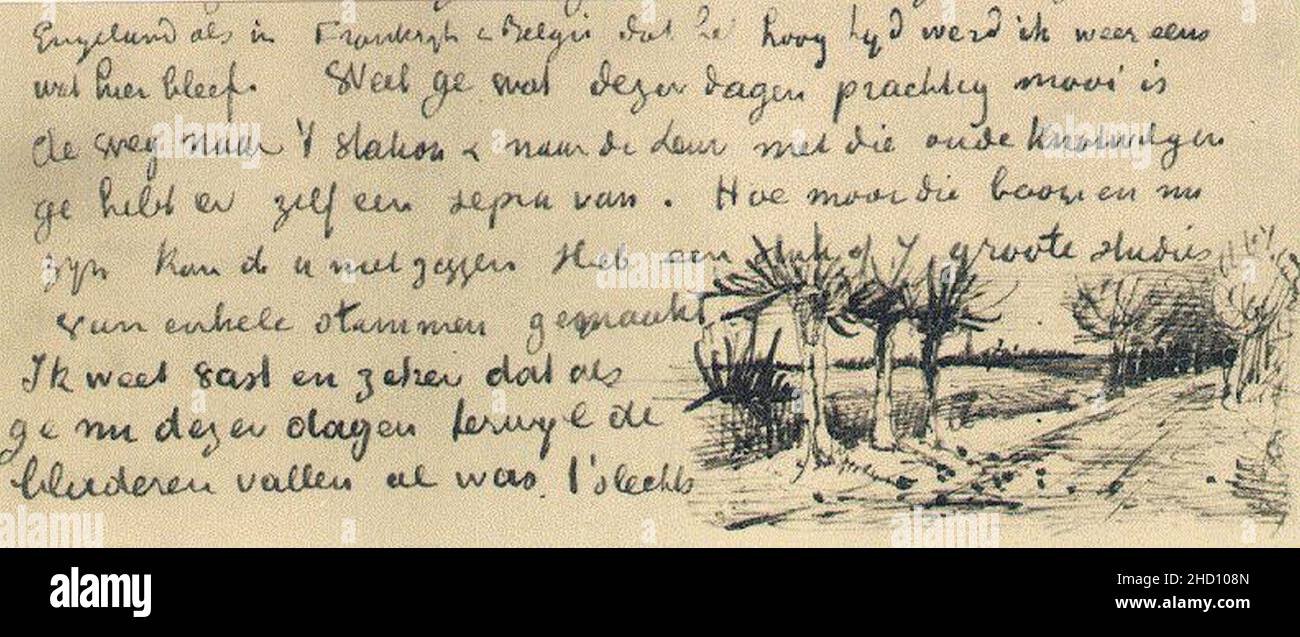 Engeland als in Frankrijk & Belgie dat het hoog tijd werd ik weer eens
wat hier bleef. Weet ge wat dezer dagen prachtig mooi is
de weg naar 't station & naar de Leur met die oude knotwilgen
ge hebt er zelf een sepia van. Hoe mooi die boomen nu
zijn kan ik u niet zeggen Heb een stuk of 7 groote studies
van enkele stammen gemaakt
Ik weet vast en zeker dat als
ge nu dezer dagen terwijl de
bladeren vallen al was 't slechts
alamy
alamy
Image ID: 2HD108N
www.alamy.com